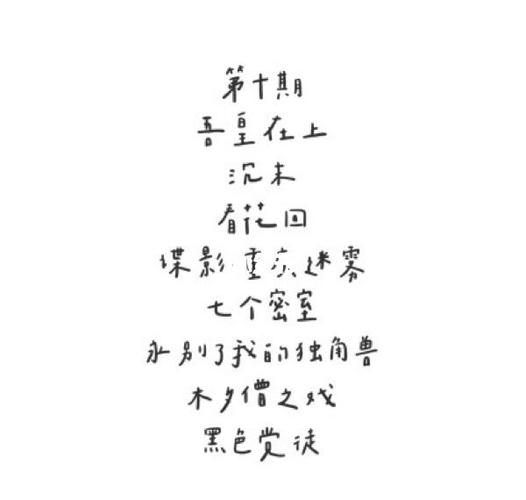 第十期
吾皇在上
沉末
看花回
谍影重重迷雾
七个密室
永别了我的独角兽
木夕僧之戏
黑色党徒